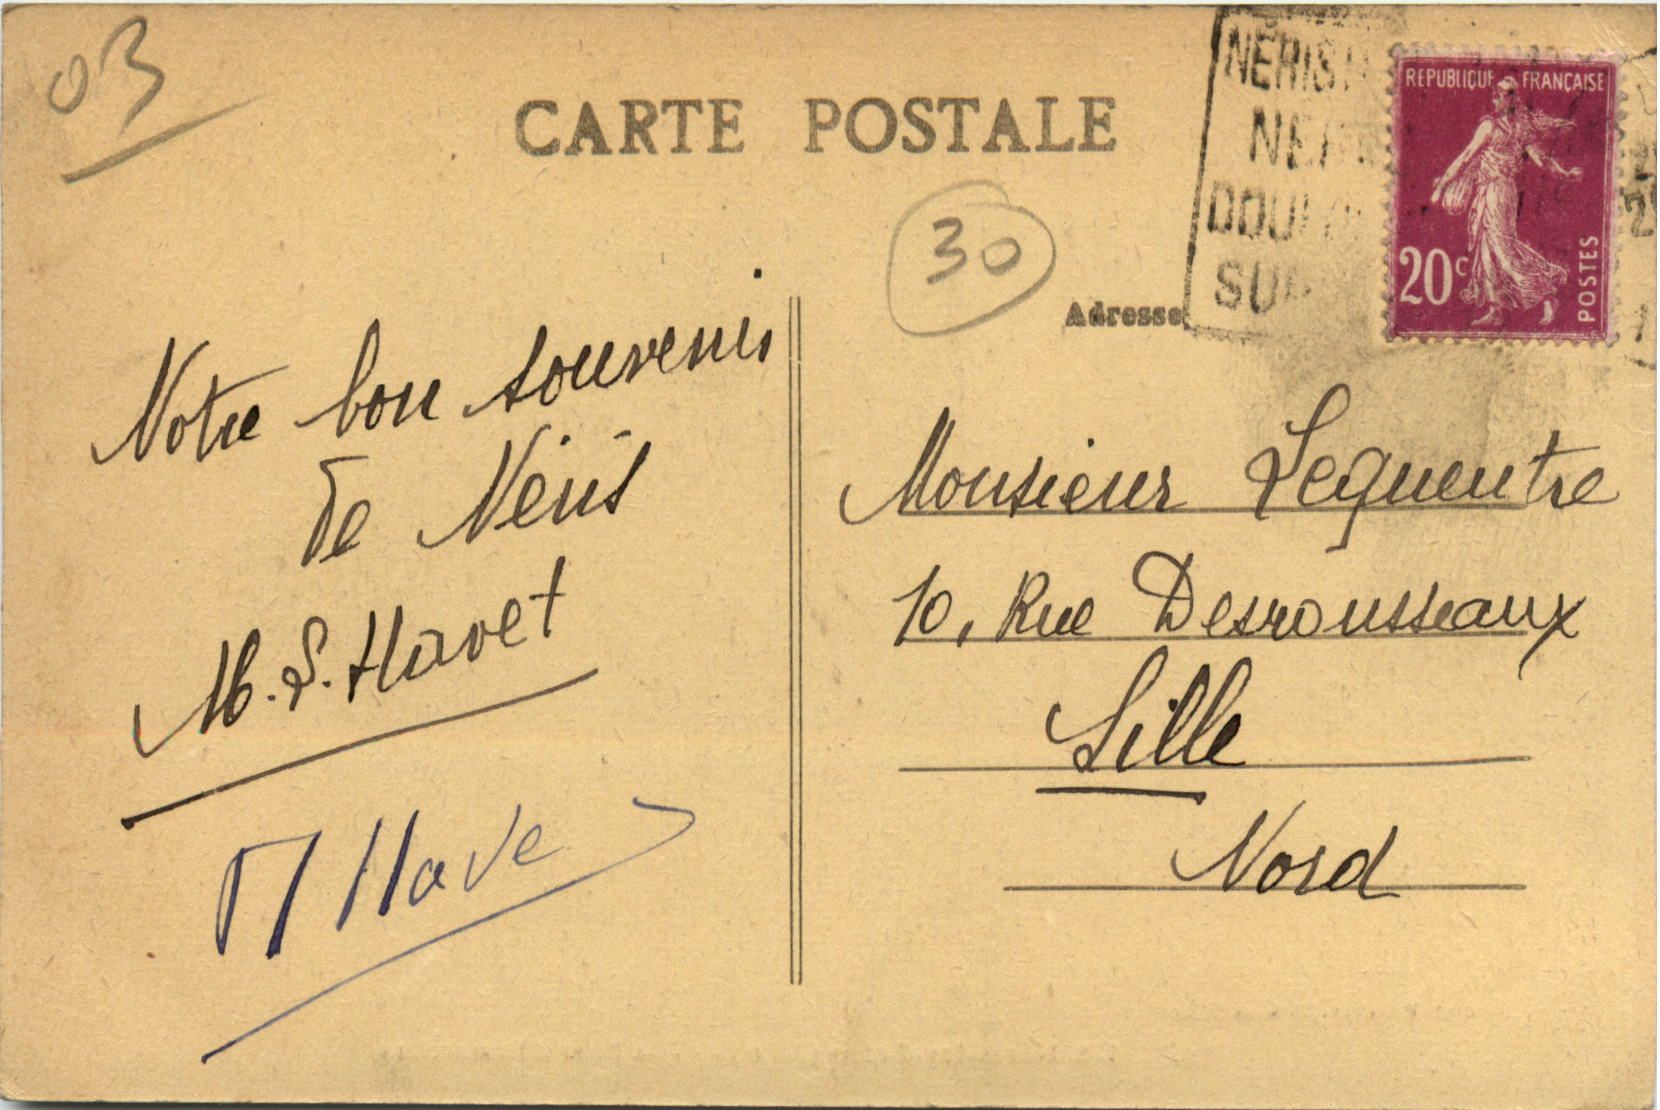 03
CARTE POSTALE
NÉRIS
RÉPUBLIQUE FRANÇAISE
20c
POSTES
30
Adresse
Notre bon souvenir
de Néris
M. L. Havet
M Have
Monsieur Lequentre
10, Rue Desrousseaux
Lille
Nord